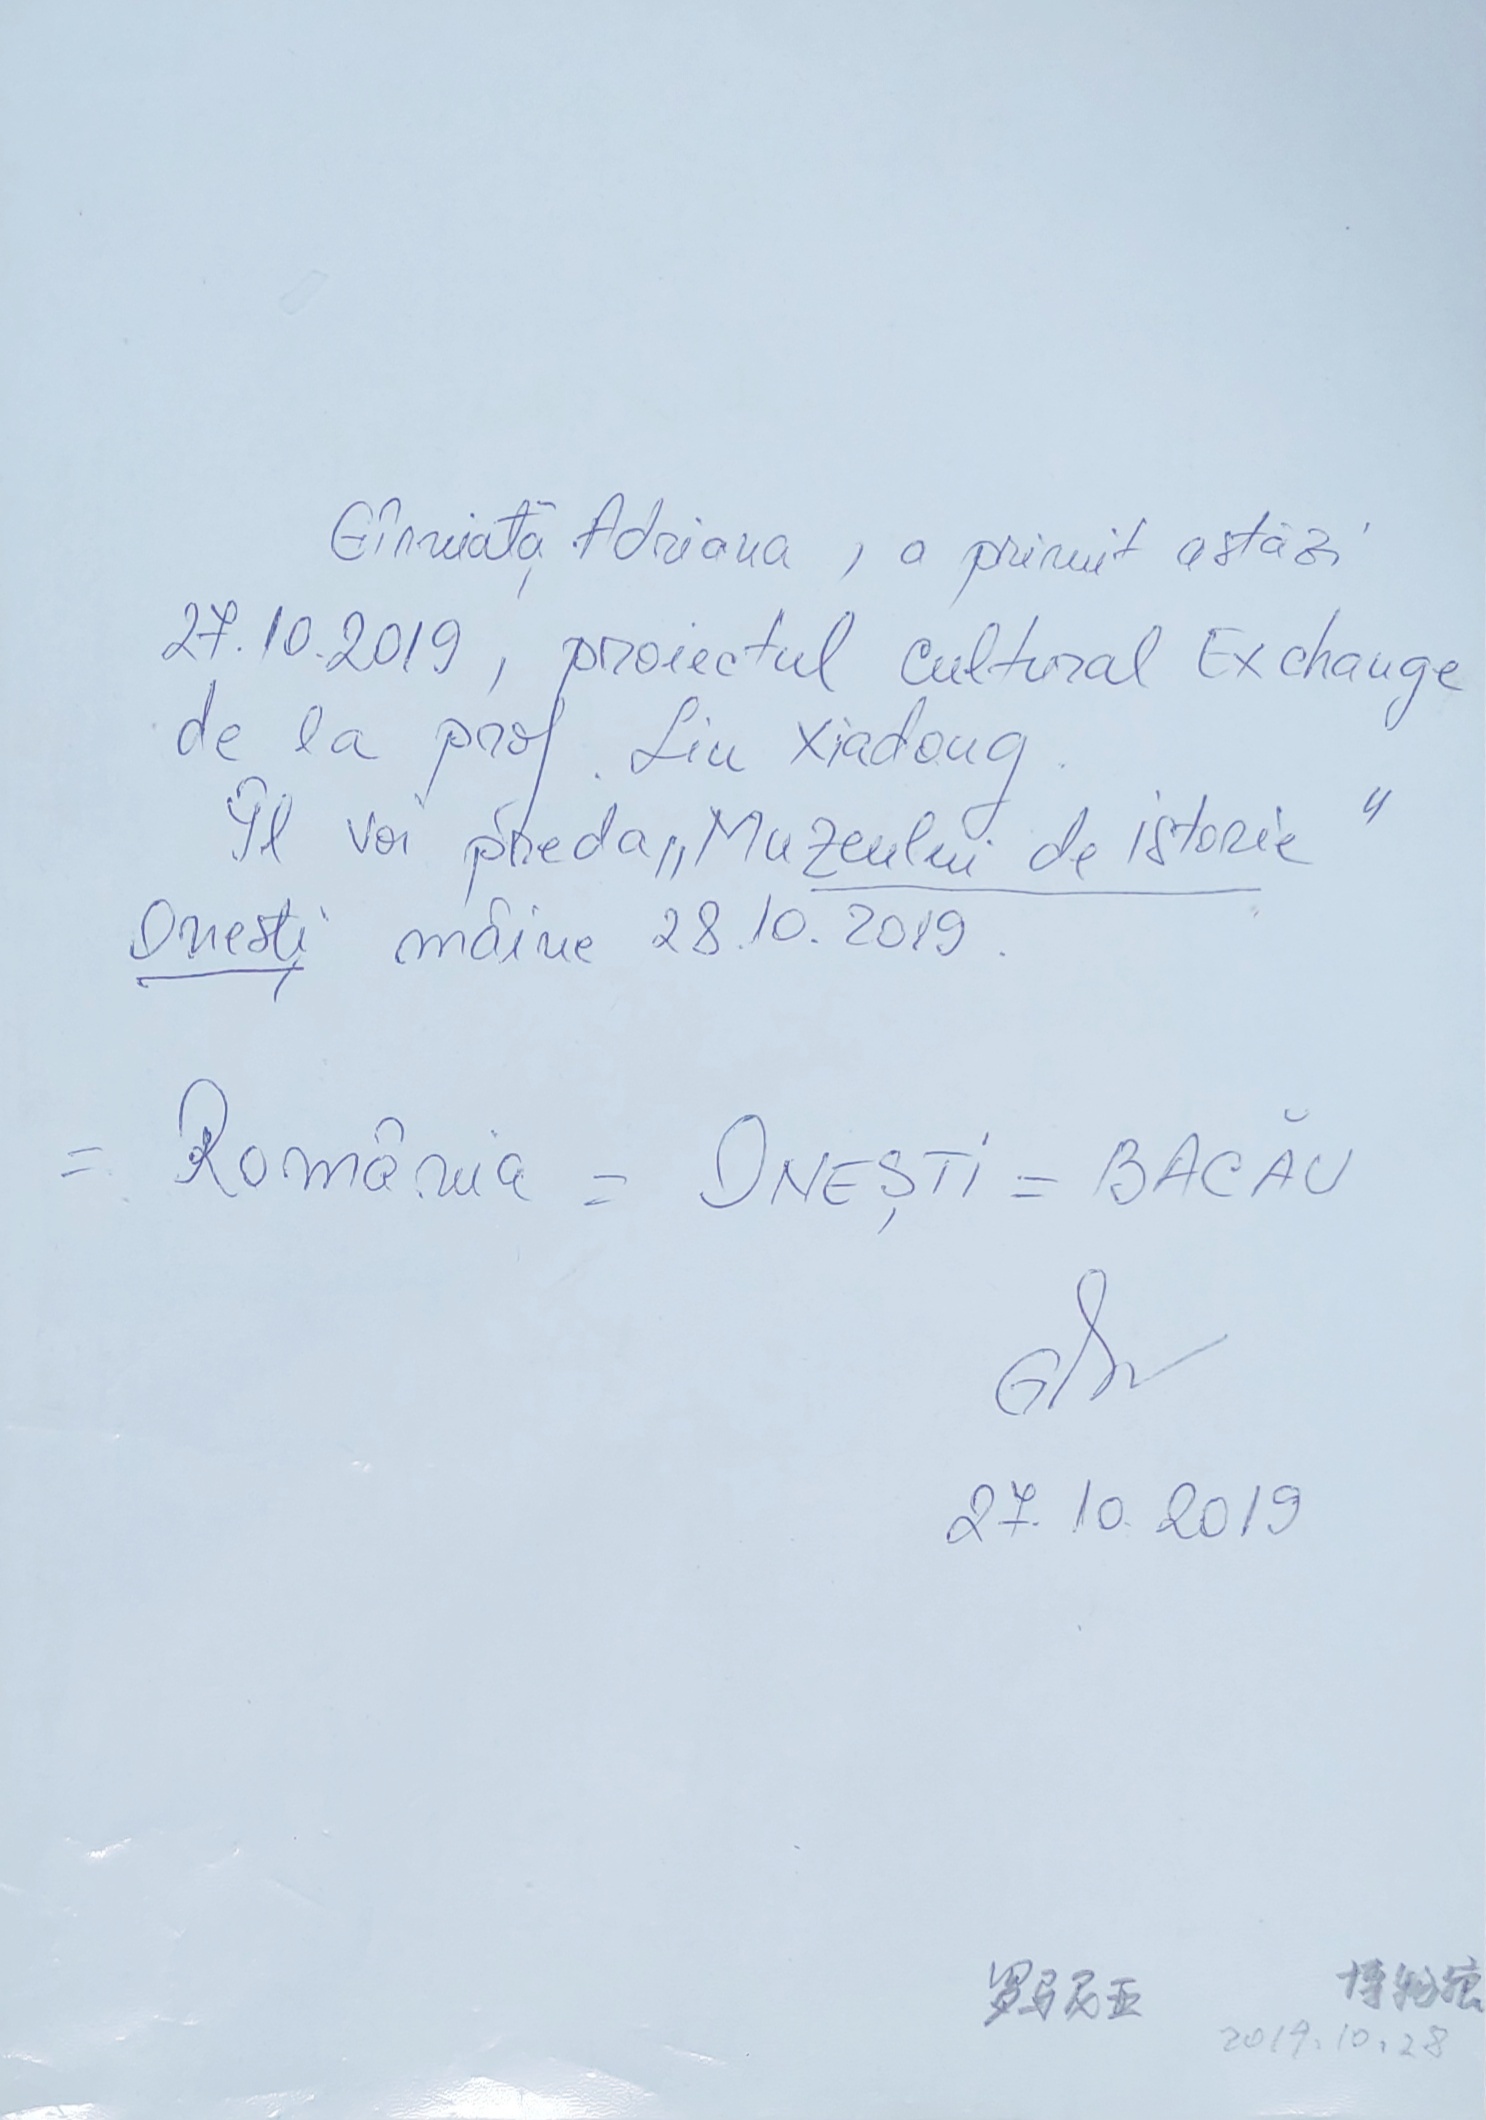 Gîrniață Adriana, a primit astăzi
27.10.2019, proiectul Cultural Exchange
de la prof. Liu Xiadong.
Îl voi preda „Muzeului de istorie"
Onești mâine 28.10.2019.
= România = ONEȘTI = BACĂU
27.10.2019
罗马尼亚 博物馆
2019.10.28